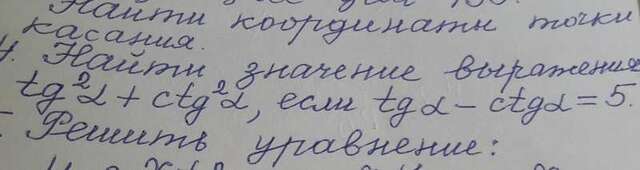 Найти координаты точки
касания.
4. Найти значение выражения
tg²α + ctg²α, если tgα − ctgα = 5.
Решить уравнение: